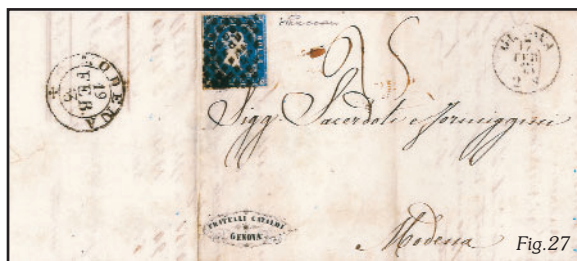 MODENA
19
FEB.
BOLLO
GENOVA
17
FEB
25
Sigg. Sacerdoti e Formiggini
FRATELLI CATALDI
GENOVA
Modena
Fig.27